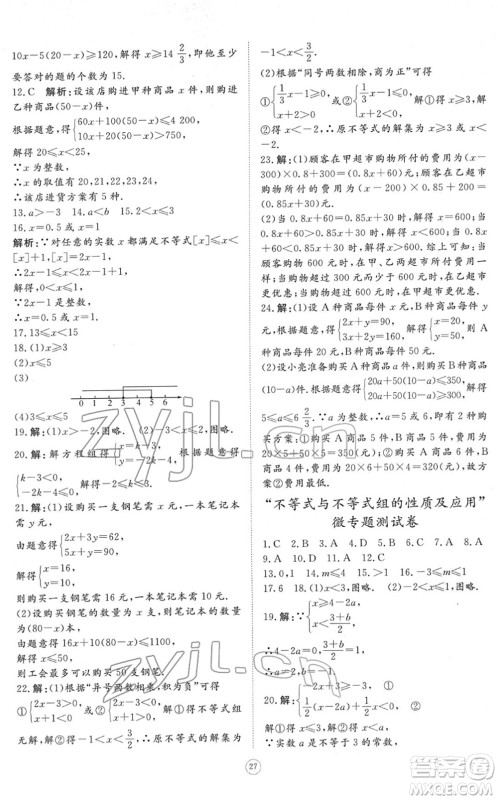 10x-5(20-x)⩾120,解得 x⩾14 2/3,即他至少
要答对的题的个数为 15.
12.C 解析:设该店购进甲种商品 x 件,则购进
乙种商品(50-x)件,
根据题意,得{60x+100(50-x)⩽4 200
10x+20(50-x)>750,
解得 20⩽x<25,
∵x 为整数,
∴x 的取值有 20,21,22,23,24,
∴该店进货方案有 5 种.
13.a>-3 14.a<b 15.m<3
16.x=0.5 或 x=1
解析:∵对任意的实数 x 都满足不等式[x]⩽x<
[x]+1,[x]=2x-1,
∴2x-1⩽x<2x-1+1,
解得 0<x⩽1,
∵2x-1 是整数,
∴x=0.5 或 x=1
17.13⩽x<15
18.(1)x⩾3 (2)x⩽5
(3)
-1 0 1 2 3 4 5 6
(4)3⩽x⩽5
19.解:(1)x>-2,图略. (2)x⩽1,图略.
20.解:解方程组得{x=k-3
y=-2-k,
∴{k-3<0
-2-k<0,
解得-2<k<3.
21.解:(1)设购买一支钢笔需 x 元,一本笔记本
需 y 元,
由题意得{2x+3y=62
5x+y=90,
解得{x=16
y=10,
则购买一支钢笔需 16 元,一本笔记本需 10 元.
(2)设购买钢笔的数量为 x 支,则笔记本的数量
为(80-x)本,
由题意得 16x+10(80-x)⩽1100,
解得 x⩽50,
则工会最多可以购买 50 支钢笔.
22.解:(1)根据“异号两数相乘,积为负”可得
①{2x-3>0
x+1<0 或②{2x-3<0
x+1>0, 解①得不等式组
无解,解②得-1<x<3/2,∴原不等式的解集为
-1<x<3/2.
(2)根据“同号两数相除,商为正”可得
①{1/3x-1⩾0
x+2>0 或②{1/3x-1⩽0
x+2<0, 解①得 x⩾3,解②
得 x<-2,∴原不等式组的解集为 x⩾3 或 x<
-2.
23.解:(1)顾客在甲超市购物所付的费用为
300+0.8(x-300)=(0.8x+60)元,顾客在乙超
市购物所付的费用为200+0.85(x-200)=
(0.85x+30)元.
(2)当 0.8x+60=0.85x+30 时,解得 x=600;当
0.8x+60>0.85x+30 时,解得 x<600;当 0.8x+
60<0.85x+30 时,解得 x>600.综上可知:当
购物 600 元时,在甲、乙两超市一样优惠;当购
物超过 300 元而少于 600 元时,在乙超市购物
更优惠;当购物超过 600 元时,在甲超市购物
更优惠.
24.解:(1)设 A 种商品每件 x 元,B 种商品每件 y
元,根据题意得{2x+y=90
3x+2y=160,解得{x=20
y=50,则 A
种商品每件 20 元,B 种商品每件 50 元.
(2)设小亮准备购买 A 种商品 a 件,则购买 B 种
商品(10-a)件,根据题意得{20a+50(10-a)⩾300
20a+50(10-a)⩽350,解得
5⩽a⩽6 2/3.∵a 为整数,∴a=5 或 6,即有 2 种购
买方案.当购买 A 商品 5 件,B 商品 5 件时,费用
为 20×5+50×5=350(元),当购买 A 商品 6 件,
B 商品 4 件时,费用为 20×6+50×4=320(元).
∵350>320,∴购买 A 商品 6 件,B 商品 4 件的
费用最低.
“不等式与不等式组的性质及应用”
微专题测试卷
1.C 2.B 3.C 4.A 5.A 6.A 7.B 8.C
9.A 10.D 11.A 12.D
13.0,1 14.m⩽4 15.>1 16.-3⩽m⩽1
17.6 18.(1)x<3,图略. (2)x⩽1,图略.
19.解:∵{x⩾4-2a,
x<(3+b)/2,
∴4-2a=0,(3+b)/2=1,
∴a=2,b=-1.
20.解:{2x-3(x-2)⩾4①
(a+2x)/3>x-1②, 解①得 x⩽2,
解②得 x<a+3.
∵实数 a 是不等于 3 的常数,
27
zyjl.cn
zyjl.cn
答案圈
MXQE.COM